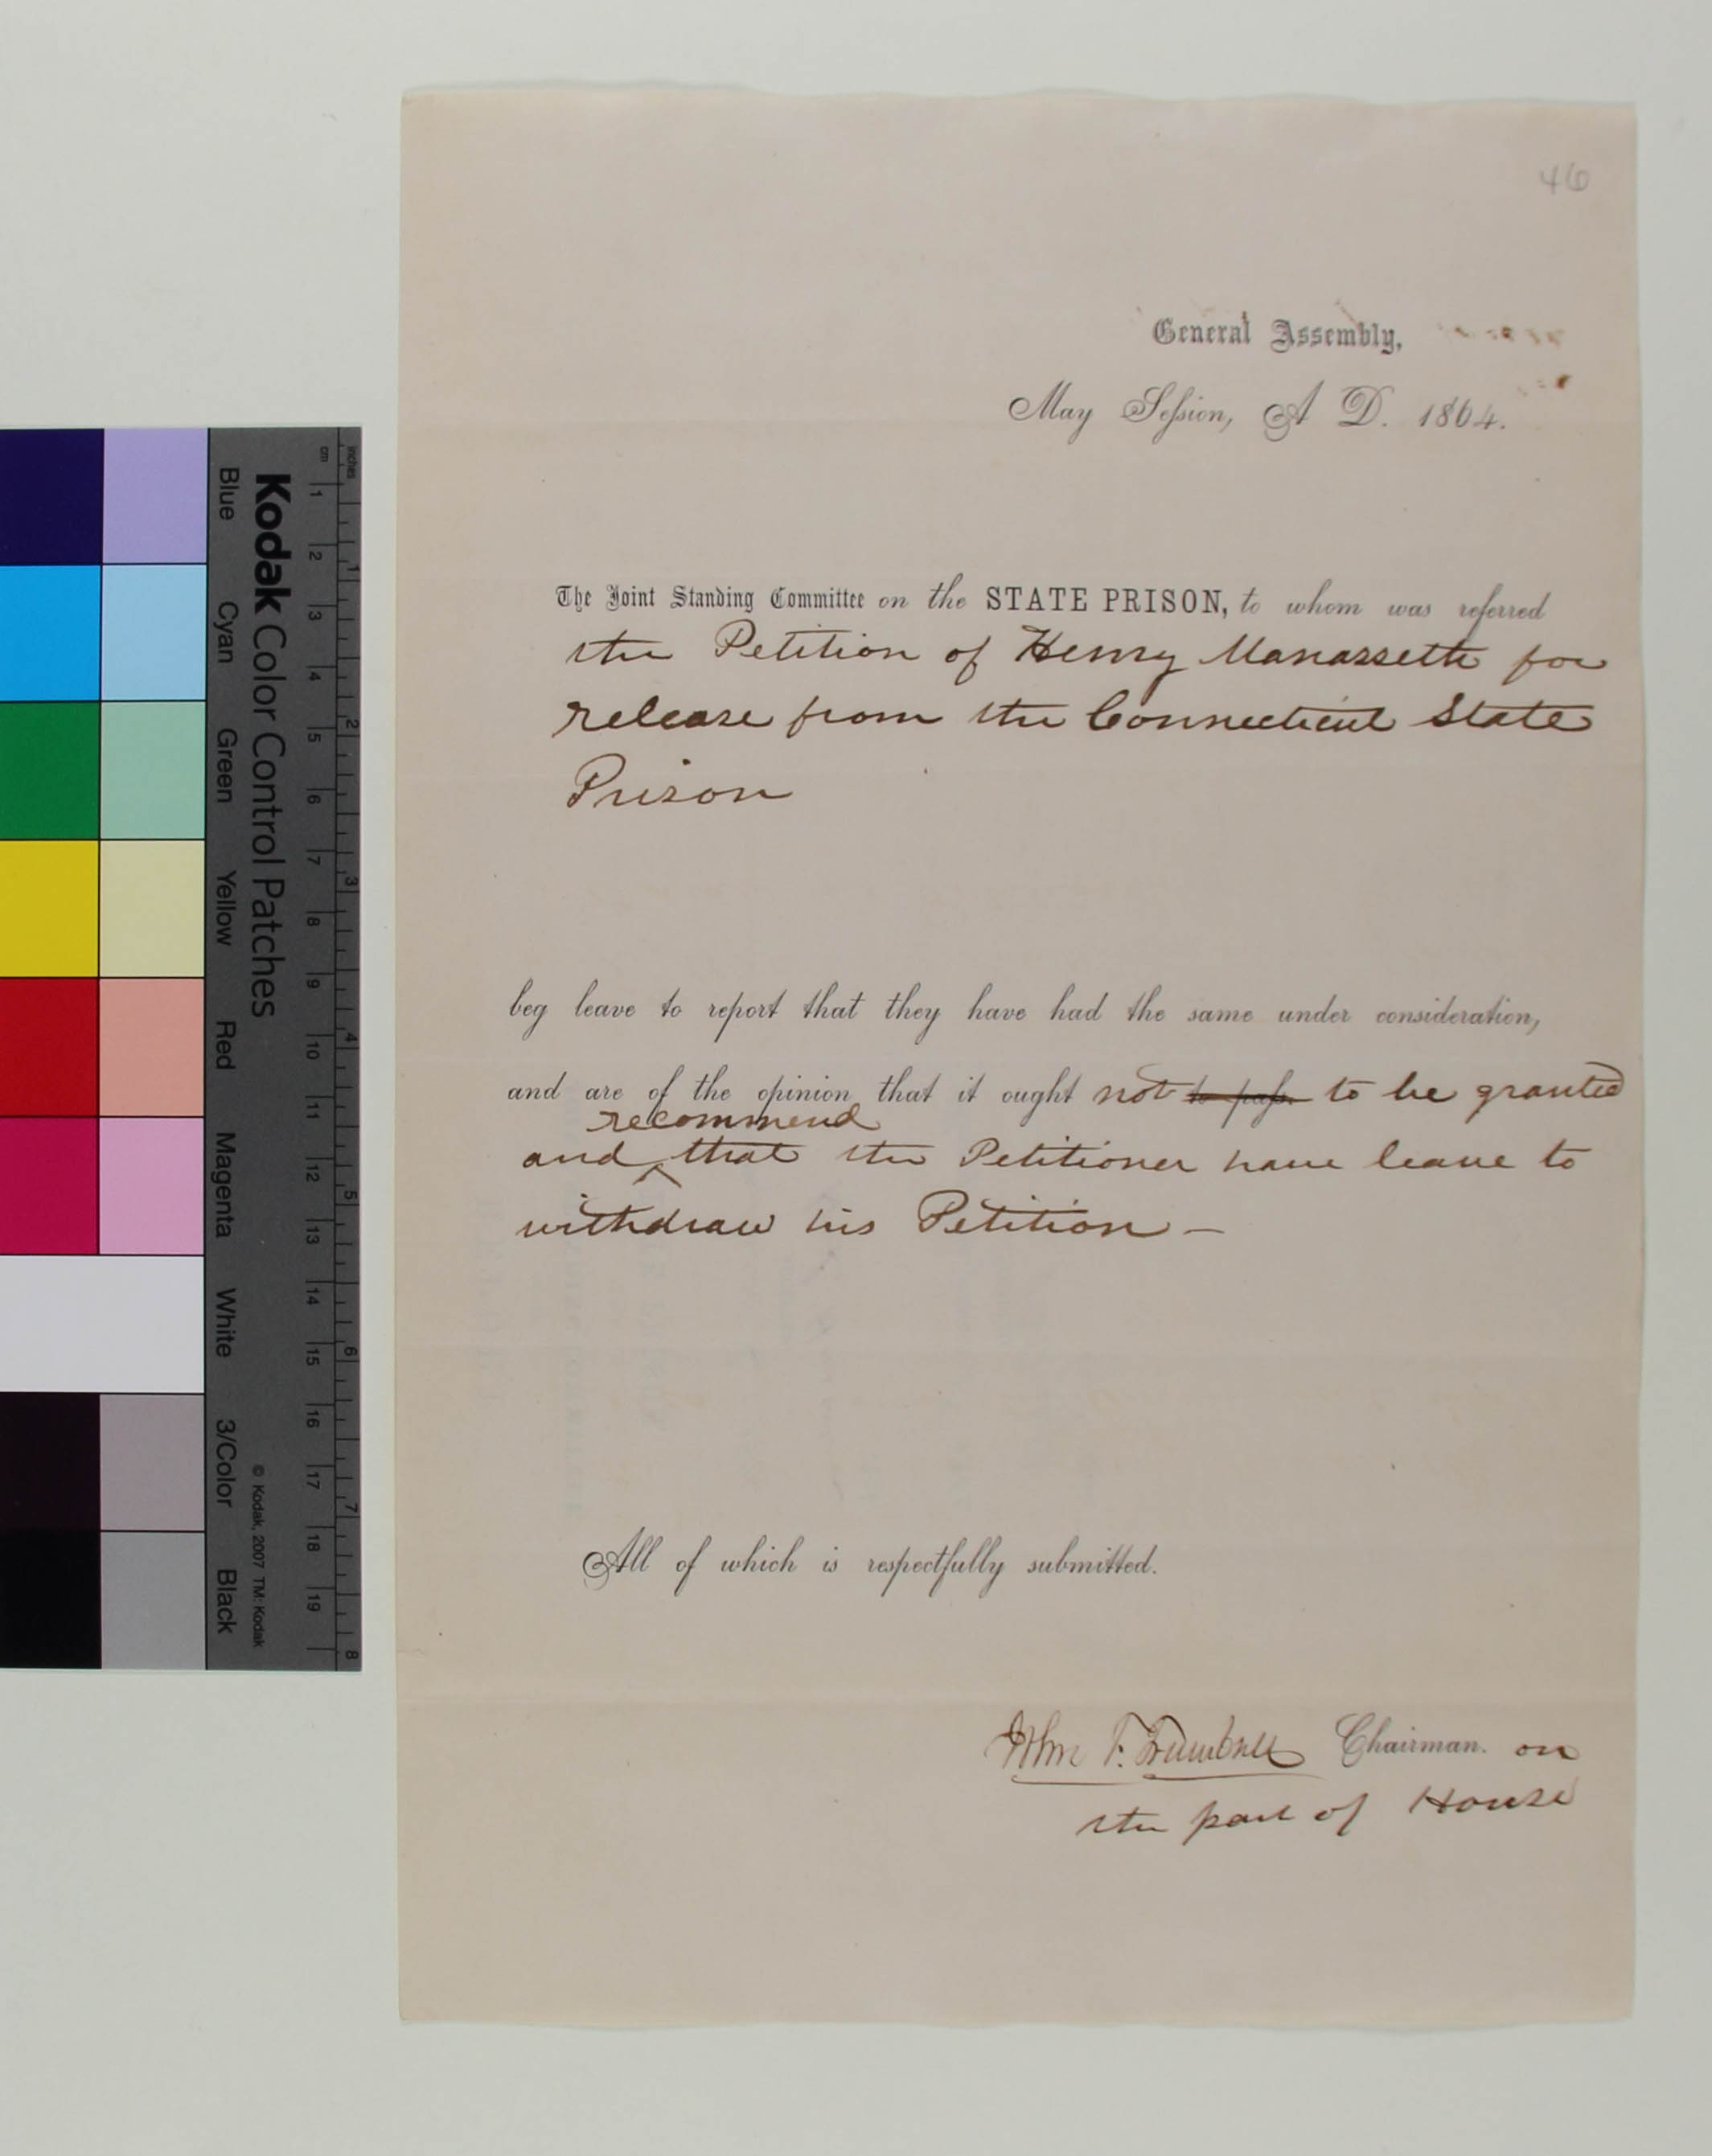 46
General Assembly,
May Session, A D. 1864.
The Joint Standing Committee on the STATE PRISON, to whom was referred
the Petition of Henry Manassette for
release from the Connecticut State
Prison
beg leave to report that they have had the same under consideration,
and are of the opinion that it ought not to pass to be granted
recommend
and ^ that the Petitioner have leave to
withdraw his Petition —
All of which is respectfully submitted.
John F. Trumbull Chairman. on
the part of House
Kodak Color Control Patches
© Kodak, 2007 TM: Kodak
Blue Cyan Green Yellow Red Magenta White 3/Color Black
cm 1 2 3 4 5 6 7 8 9 10 11 12 13 14 15 16 17 18 19
inches 1 2 3 4 5 6 7 8